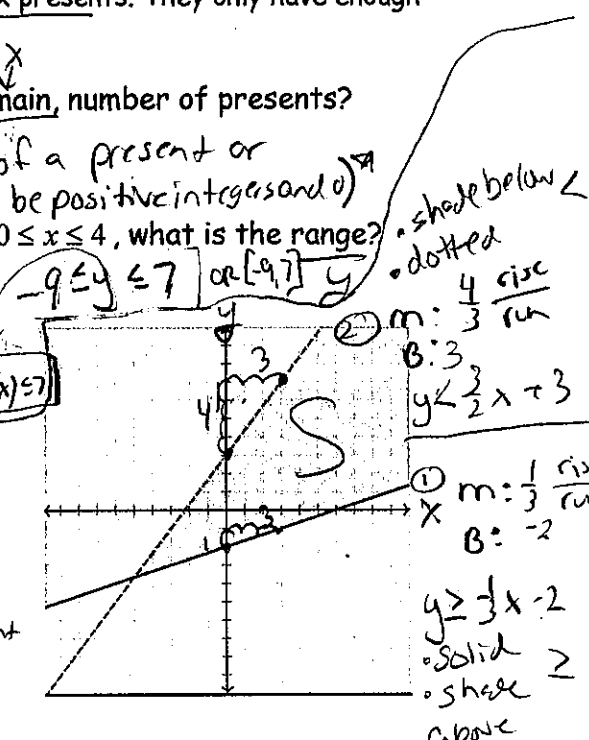 x presents. They only have enough
x
main, number of presents?
of a present or
be positive integers and 0)
0 ≤ x ≤ 4, what is the range?
-9 ≤ y ≤ 7 or [-9,7] y
x) ≤ 7
• shade below <
• dotted
② m: 4/3 rise/run
B: 3
y < 3/2 x + 3
y
3
4
S
① m: 1/3 ris/ru
x
B: -2
3
1
y ≥ 1/3 x - 2
• solid ≥
• shade
above